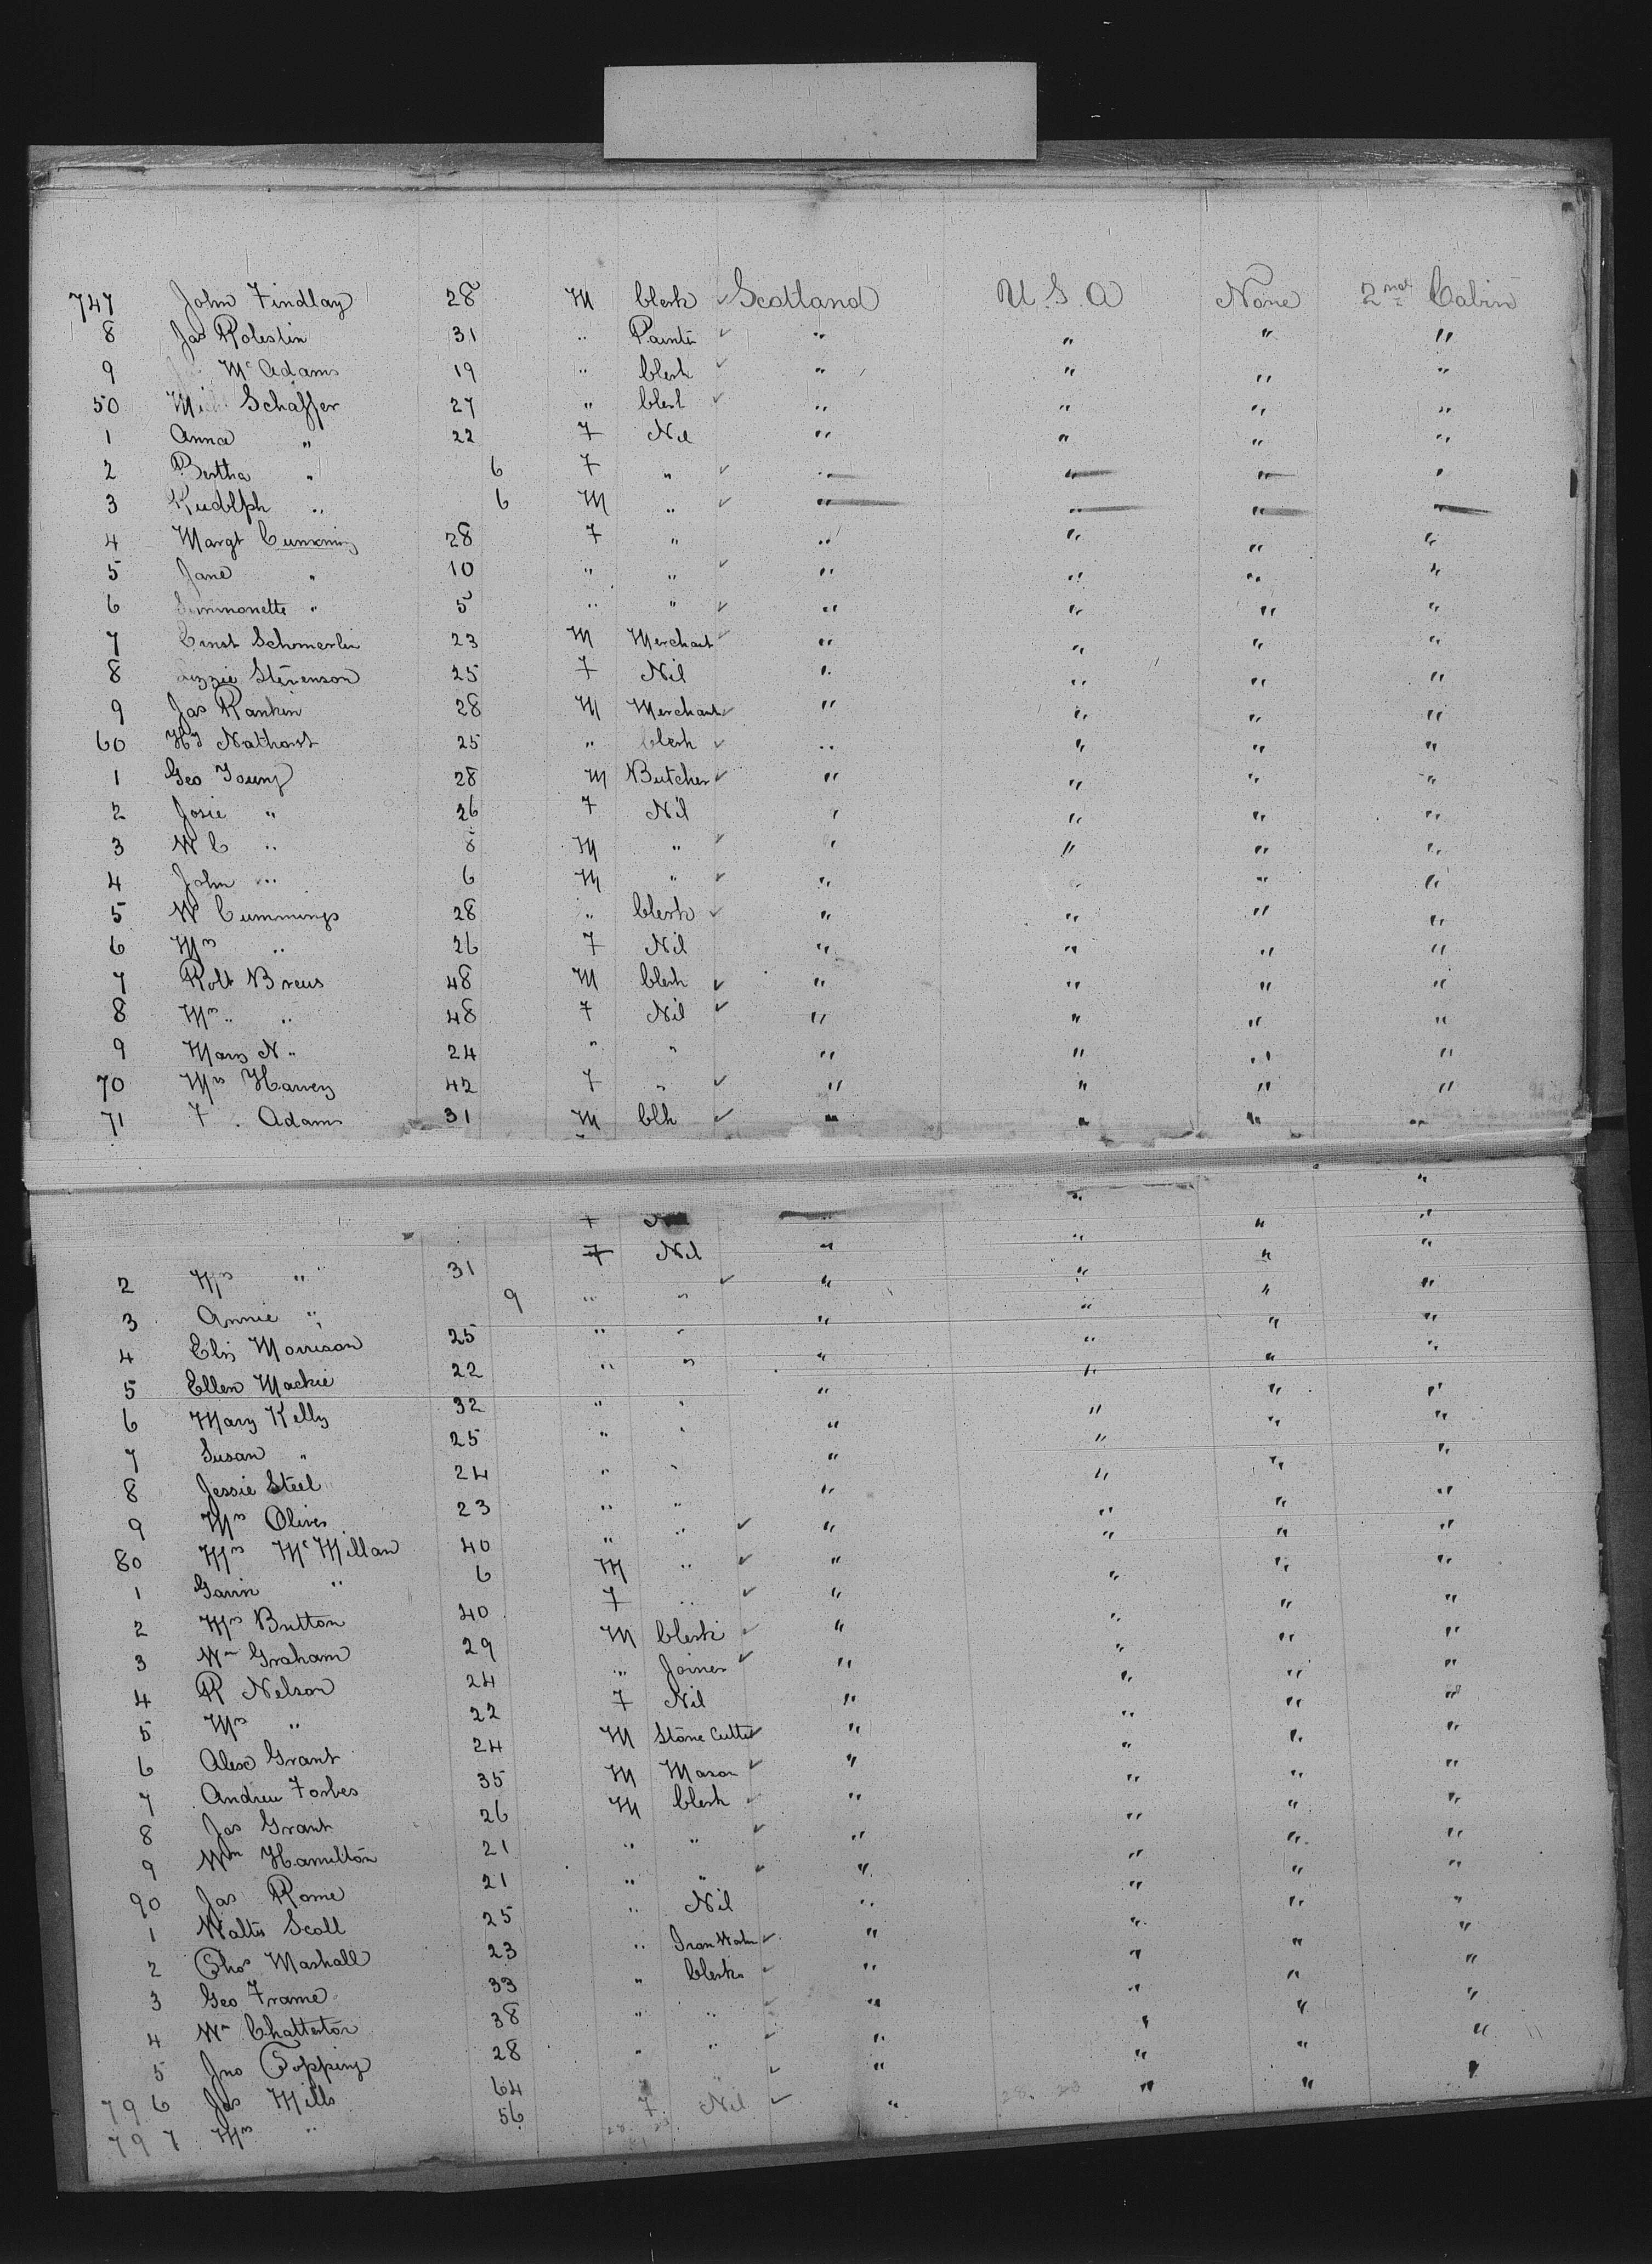 747 John Findlay 28 M Clerk ✓ Scotland U S A None 2nd Cabin
8 Jas Rolestin 31 " Painter ✓ " " " "
9 McAdams 19 " Clerk ✓ " " " "
50 Schaffer 27 " Clerk ✓ " " " "
1 Anna " 22 F Nil " " " "
2 Bertha " 6 F " ✓ " " " "
3 Rudolph " 6 M " ✓ " " " "
4 Margt Cumming 28 F " " " " "
5 Jane " 10 " " ✓ " " " "
6 " 5 " " ✓ " " " "
7 Ernst Schomerlin 23 M Merchant ✓ " " " "
8 Lizzie Stevenson 25 F Nil " " " "
9 Jas Rankin 28 M Merchant ✓ " " " "
60 Hy Nathorst 25 " Clerk ✓ " " " "
1 Geo Young 28 M Butcher ✓ " " " "
2 Josie " 26 F Nil " " " "
3 W C " 8 M " ✓ " " " "
4 John " 6 M " ✓ " " " "
5 W Cummings 28 " Clerk ✓ " " " "
6 Mrs " 26 F Nil " " " "
7 Robt Breus 48 M Clerk ✓ " " " "
8 Mrs " " 48 F Nil ✓ " " " "
9 Mary N " 24 " " " " " "
70 Mrs Harvey 42 F " ✓ " " " "
71 F. Adams 31 M Clk ✓ " " " "
2 Mrs " 31 F Nil " " " "
3 Annie " 9 " " ✓ " " " "
4 Eliz Morrison 25 " " " " " "
5 Ellen Mackie 22 " " " " " "
6 Mary Kelly 32 " " " " " "
7 Susan " 25 " " " " " "
8 Jessie Steel 24 " " " " " "
9 Mrs Oliver 23 " " " " " "
80 Mrs McMillan 40 " " ✓ " " " "
1 Gavin " 6 M " ✓ " " " "
2 Mrs Button 40 F " ✓ " " " "
3 Wm Graham 29 M Clerk ✓ " " " "
4 R Nelson 24 " Joiner ✓ " " " "
5 Mrs " 22 F Nil " " " "
6 Alex Grant 24 M Stone Cutter ✓ " " " "
7 Andrew Forbes 35 M Mason ✓ " " " "
8 Jas Grant 26 M Clerk ✓ " " " "
9 Wm Hamilton 21 " " ✓ " " " "
90 Jas Rome 21 " " ✓ " " " "
1 Walter Scott 25 " Nil " " " "
2 Thos Mashall 23 " Iron ✓ " " " "
3 Geo Frame 33 " Clerk ✓ " " " "
4 Wm Chatterton 38 " " ✓ " " " "
5 Jno Topping 28 " " ✓ " " " "
796 Jas Mills 64 ✓ " " " "
797 Mrs " 56 F Nil ✓ "